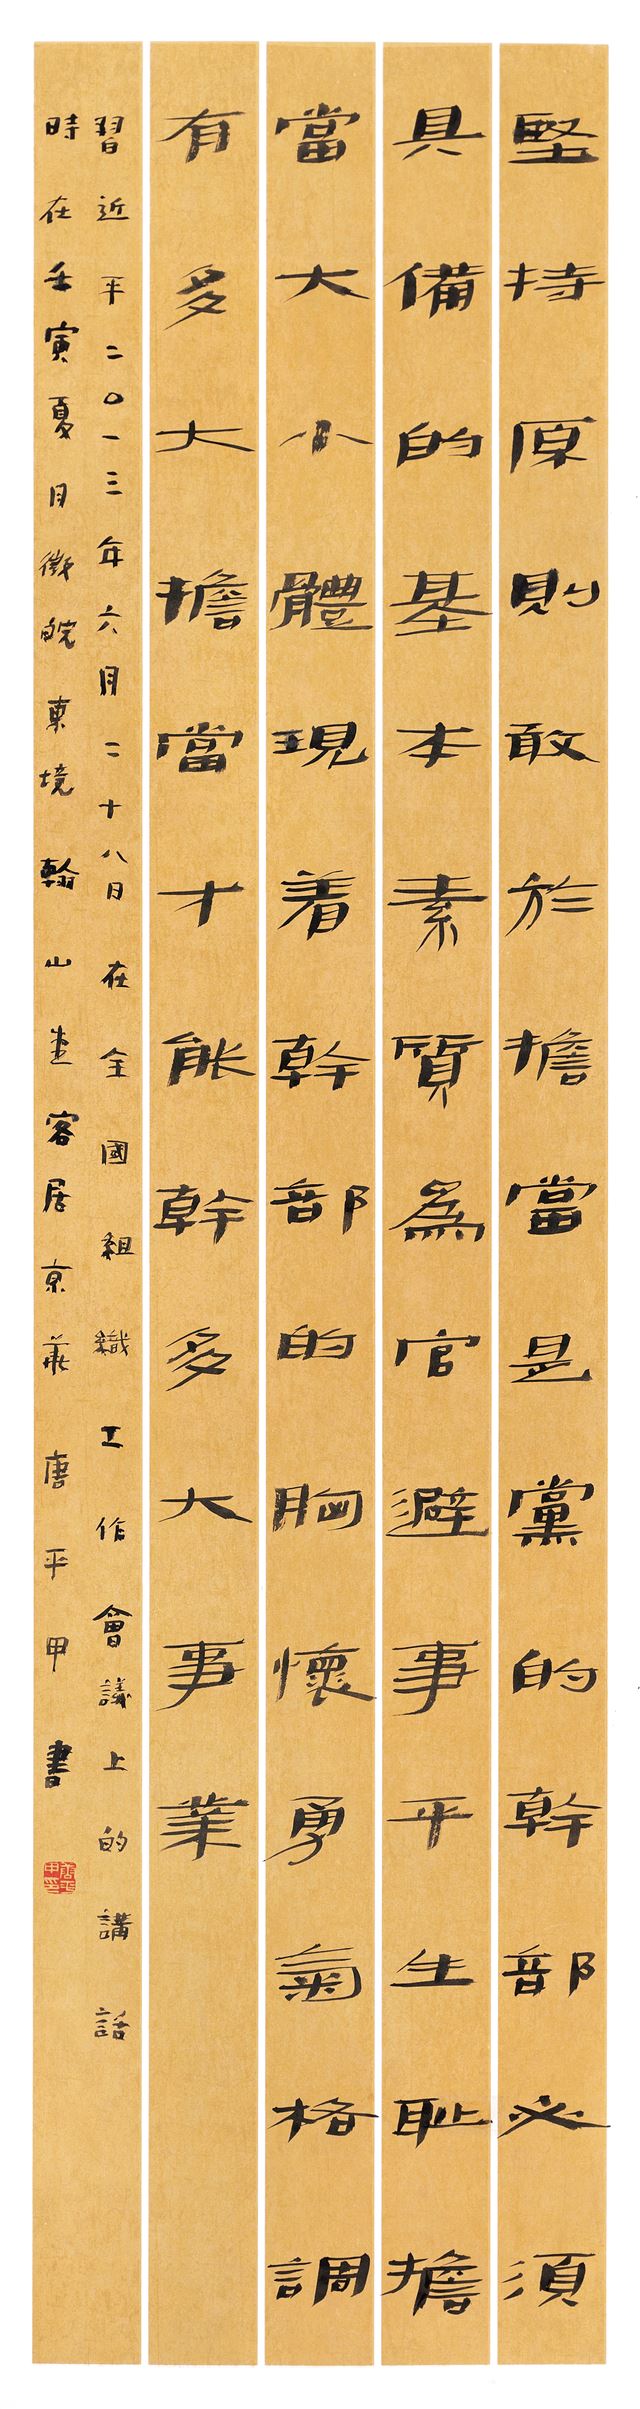 堅持原則敢於擔當是黨的幹部必須
具備的基本素質爲官避事平生耻擔
當大小體現着幹部的胸懷勇氣格調
有多大擔當才能幹多大事業
習近平二〇一三年六月二十八日在全國組織工作會議上的講話
時在壬寅夏月徽皖東境翰山客居京華唐平甲書